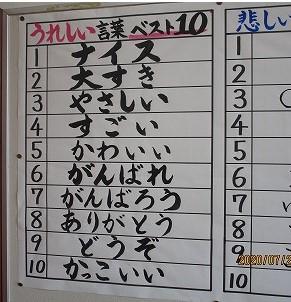 うれしい言葉ベスト10
1 ナイス
2 大すき
3 やさしい
4 すごい
5 かわいい
6 がんばれ
7 がんばろう
8 ありがとう
9 どうぞ
10 かっこいい
悲しい
1
2
3
4
5
6
7
8
9
10
2020/07/2